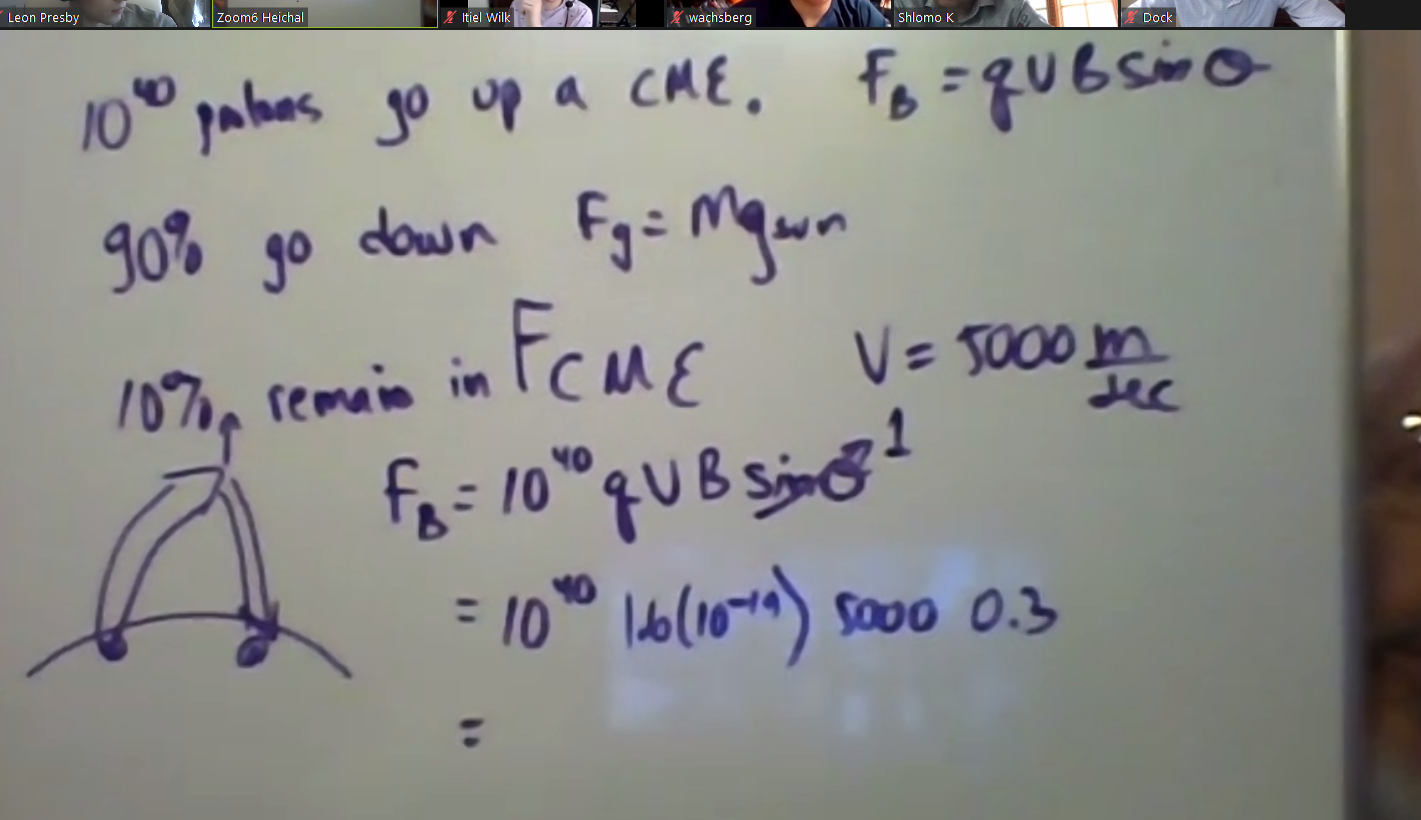 Leon Presby
Zoom6 Heichal
Itiel Wilk
wachsberg
Shlomo K
Dock
10⁴⁰ protons go up a CME. F_B = qVB sin θ
90% go down Fg = Mg sun
10% remain in F CME V = 5000 m/sec
F_B = 10⁴⁰ qVB sin θ 1
= 10⁴⁰ 1.6(10⁻¹⁹) 5000 0.3
=